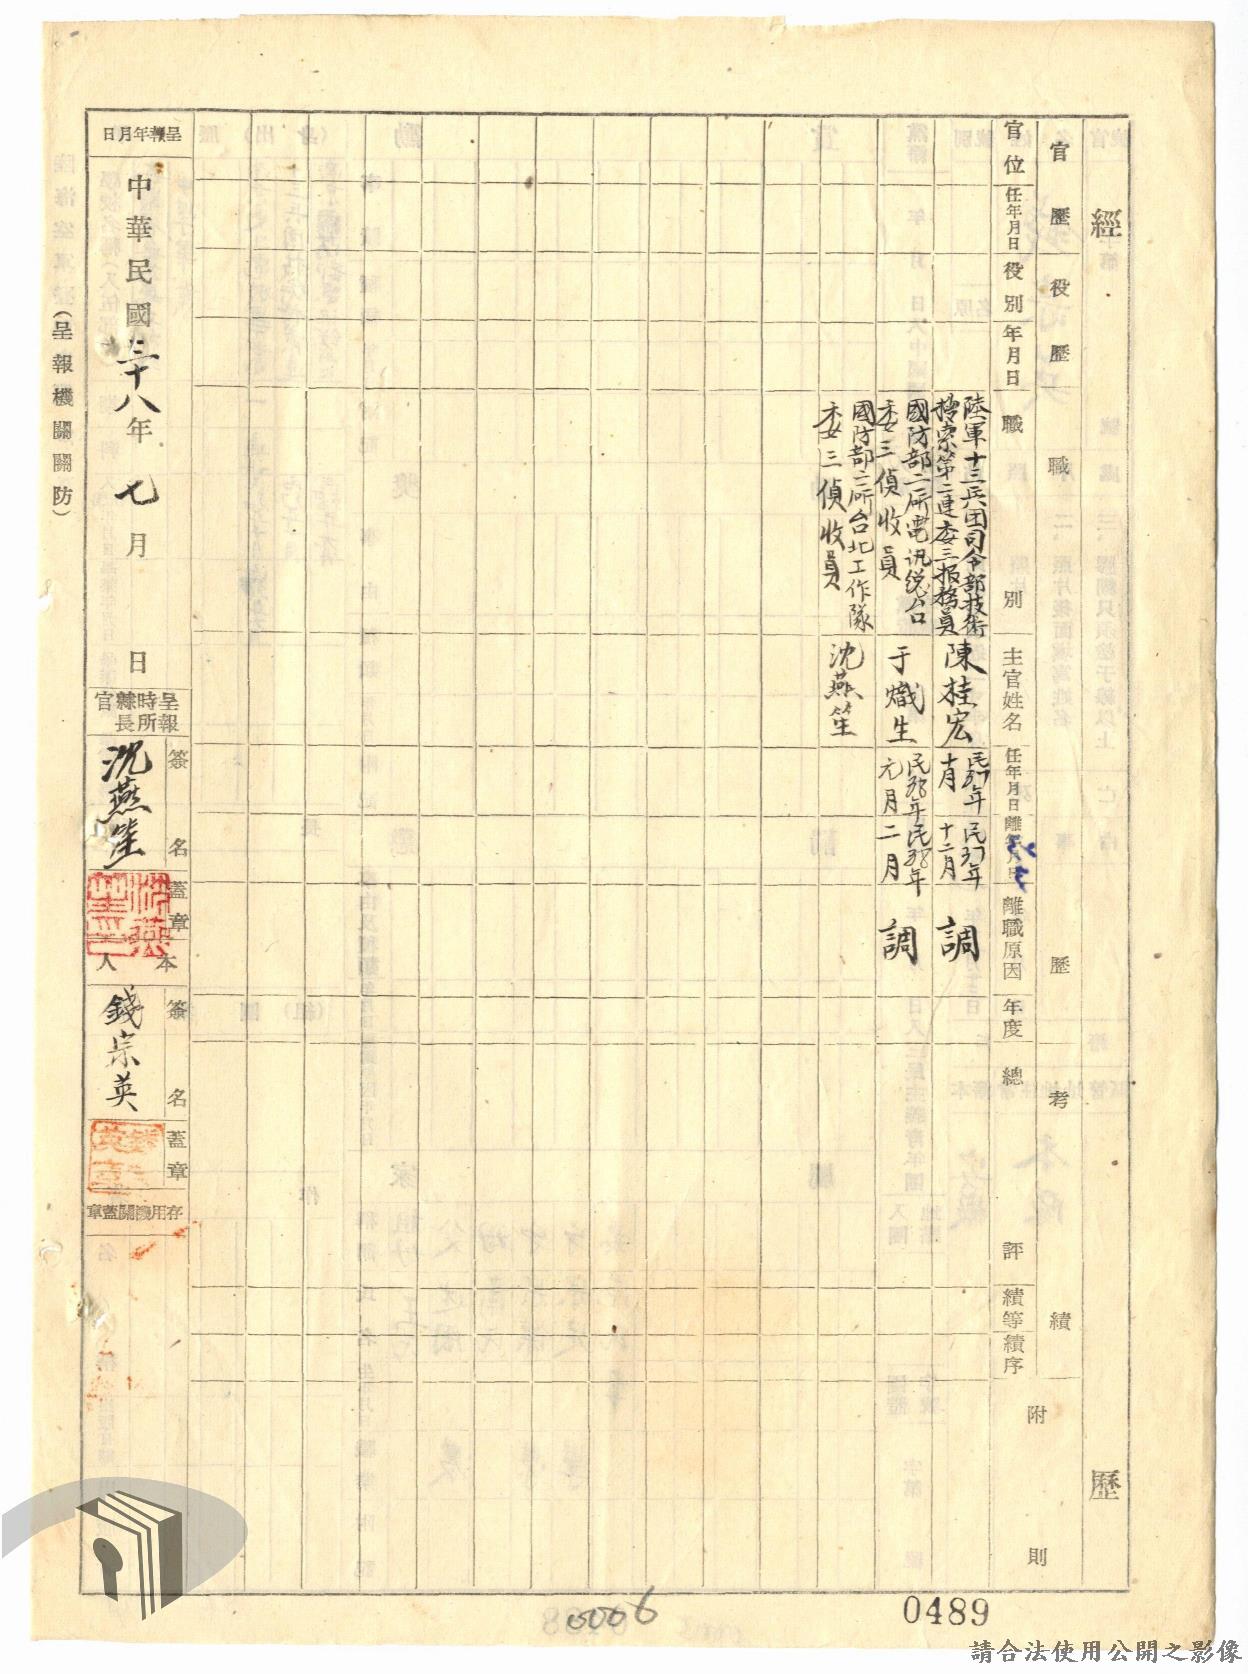 經歷
官歷
役歷
職歷
考績
附則
官位
任年月日
役別
年月日
職別
主官姓名
任年月日
離年月日
離職原因
年度
總評
績等
績序
陸軍十三兵团司令部技術
搜索第二連委三报務員
陳桂宏
民37年
十月
民37年
十二月
調
國防部二所電訊总台
委三偵收員
于熾生
民38年
元月
民38年
二月
調
國防部二所台北工作隊
委三偵收員
沈燕笙
呈報年月日
中華民國三十八年七月 日
呈報時所隸官長
簽名
沈燕笙
蓋章
沈燕
本人
簽名
錢宗英
蓋章
存用機關蓋章
(呈報機關關防)
0006
0489
請合法使用公開之影像